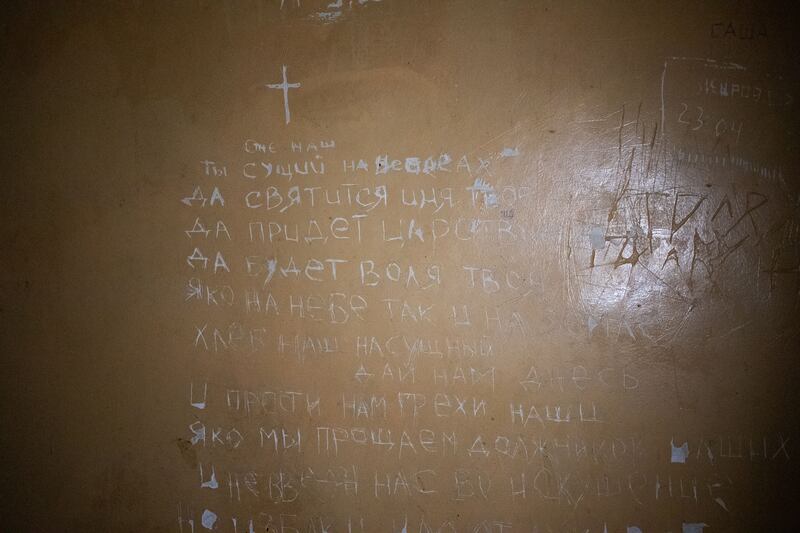 САША
23:04
ОЧЕ НАШ
ТЫ СУЩИЙ НА НЕБЕСАХ
ДА СВЯТИТСЯ ИМЯ
ДА ПРИДЕТ ЦАРСТВ
ДА БУДЕТ ВОЛЯ ТВОЯ
ЯКО НА НЕБЕ ТАК И НА
ХЛЕБ НАШ НАСУЩНЫЙ
ДАЙ НАМ ДНЕСЬ
И ПРОСТИ НАМ ГРЕХИ НАШИ
ЯКО МЫ ПРОЩАЕМ ДОЛЖНИКОВ
И НЕ ВВЕДИ НАС ВО ИСКУШЕНИЕ